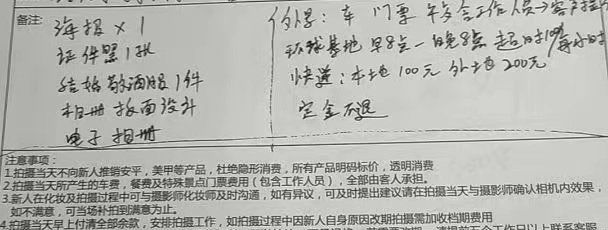 备注:
海报 x 1
证件照 1张
结婚敬酒服 1件
相册 板面设计
电子相册
外景: 车 门票 工作人员→客
环球基地 早8点一晚8点 超时 /每小时
快递: 本地 100元 外地 200元
定金不退
注意事项:
1.拍摄当天不向新人推销安平,美甲等产品,杜绝隐形消费,所有产品明码标价,透明消费
2.拍摄当天所产生的车费,餐费及特殊景点门票费用(包含工作人员),全部由客人承担。
3.新人在化妆及拍摄过程中可与摄影师化妆师及时沟通,如有异议,可及时提出建议请在拍摄当天与摄影师确认相机内效果,
如不满意,可当场补拍到满意为止。
4.拍摄当天早上付清全部余款,安排拍摄工作,如拍摄过程中因新人自身原因改期拍摄需加收档期费用